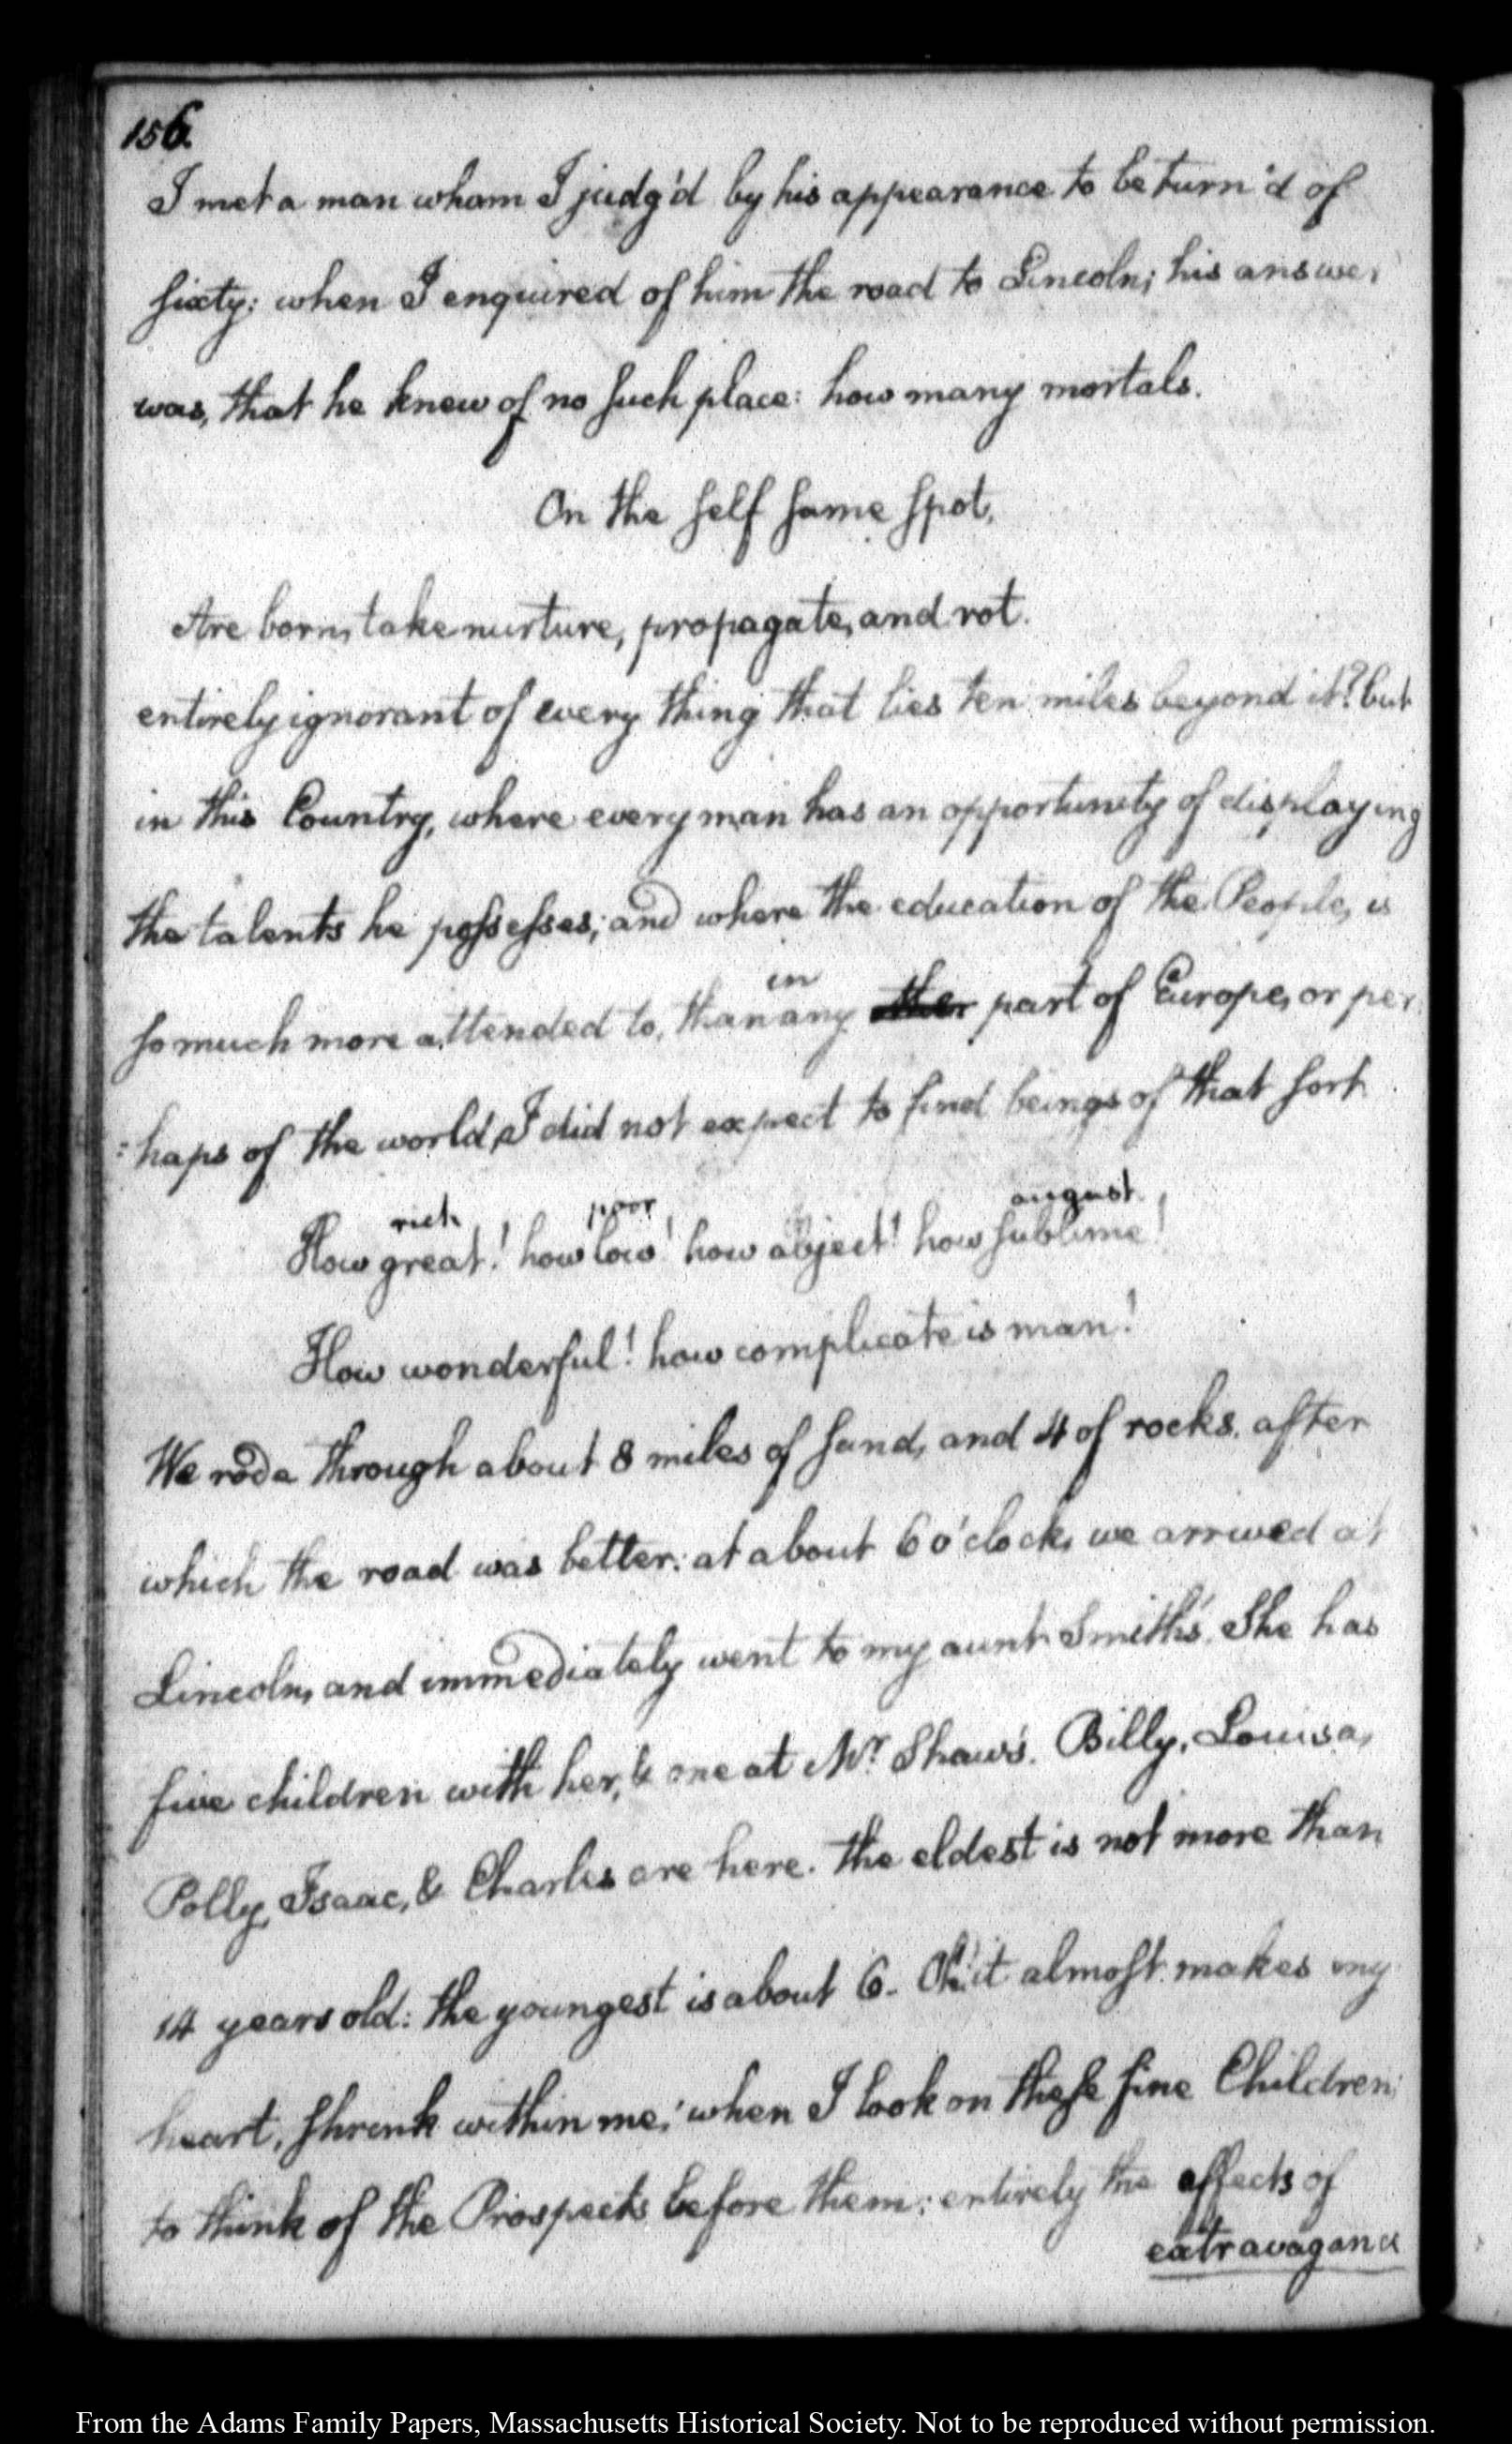 156.
I met a man wham I judg'd by his appearance to be turn'd of
sixty: when I enquired of him the road to Lincoln; his answer
was, that he knew of no such place: how many mortals.
On the self same spot,
Are born, take nurture, propagate, and rot.
entirely ignorant of every thing that lies ten miles beyond it? but
in this Country, where every man has an opportunity of displaying
the talents he possesses; and where the education of the People, is
in
so much more attended to, than any other part of Europe, or per
:haps of the world, I did not expect to find beings of that sort
rich poor august
How great! how low! how abject! how sublime!
How wonderful! how complicate is man!
We rode through about 8 miles of sand, and 4 of rocks. after
which the road was better. at about 6 o'clock, we arrived at
Lincoln, and immediately went to my aunt Smith's. She has
five children with her, & one at Mr. Shaw's. Billy, Louisa,
Polly, Isaac, & Charles are here. the eldest is not more than
14 years old: the youngest is about 6. Oh! it almost makes my
heart, shrink within me; when I look on these fine Children;
to think of the Prospects before them: entirely the effects of
extravagance
From the Adams Family Papers, Massachusetts Historical Society. Not to be reproduced without permission.